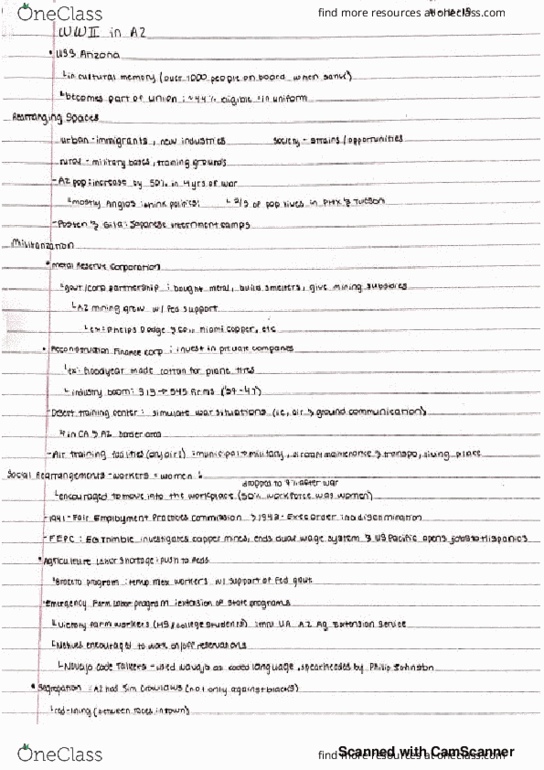 OneClass
find more resources at oneclass.com
WWII in AZ
• USS Arizona
↳in cultural memory (over 1000 people on board when sank)
↳becomes part of union : ~44% eligible in uniform
Rearranging Spaces
urban - immigrants, new industries society - strains/opportunities
rural - military bases, training grounds
- AZ pop: increase by 50% in 4yrs of war
↳mostly Anglos: think politics! ↳ 2/3 of pop lives in PHX & Tucson
- Posten & Gila: Japanese internment camps
Militarization
• Metal Reserve Corporation
↳govt/corp partnership : bought metal, build smelters, give mining subsidies
↳AZ mining grew w/ Fed support
↳ex: Phelps Dodge miami copper, etc
• Reconstruction Finance corp : invest in private companies
↳ex: Goodyear made cotton for plane tires
↳industry boom: 319 → 545 firms (39-47)
-Desert training center : simulate war situations (i.e, air & ground communication)
↳in CA & AZ border area
-Air training facilities (only air!) : municipal → military, aircraft maintenance & transpo, living place
Social Rearrangements - workers + women
dropped to after war
↳encouraged to move into the workplace (50% workforce was women)
-1941 - Fair Employment Practices Commission → 1942 - Exec order discrimination
-FEPC : Ed Trimble investigates copper mines, ends dual wage system & US Pacific opens jobs to Hispanics
• Agriculture Labor shortage : push to Feds
↳Bracero program : temp mex workers w/ support of Fed govt
-Emergency Farm Labor program : extension of State programs
↳Victory farm workers (HS/college students) : thru UA AZ Ag Extension Service
↳Natives encouraged to work on/off reservations
↳Navajo Code Talkers - used navajo as coded language, spearheaded by Philip Johnston
• Segregation : AZ has Jim Crow Laws (not only against blacks)
↳red-lining (between races in town)
OneClass
find more resources at oneclass.com
Scanned with CamScanner